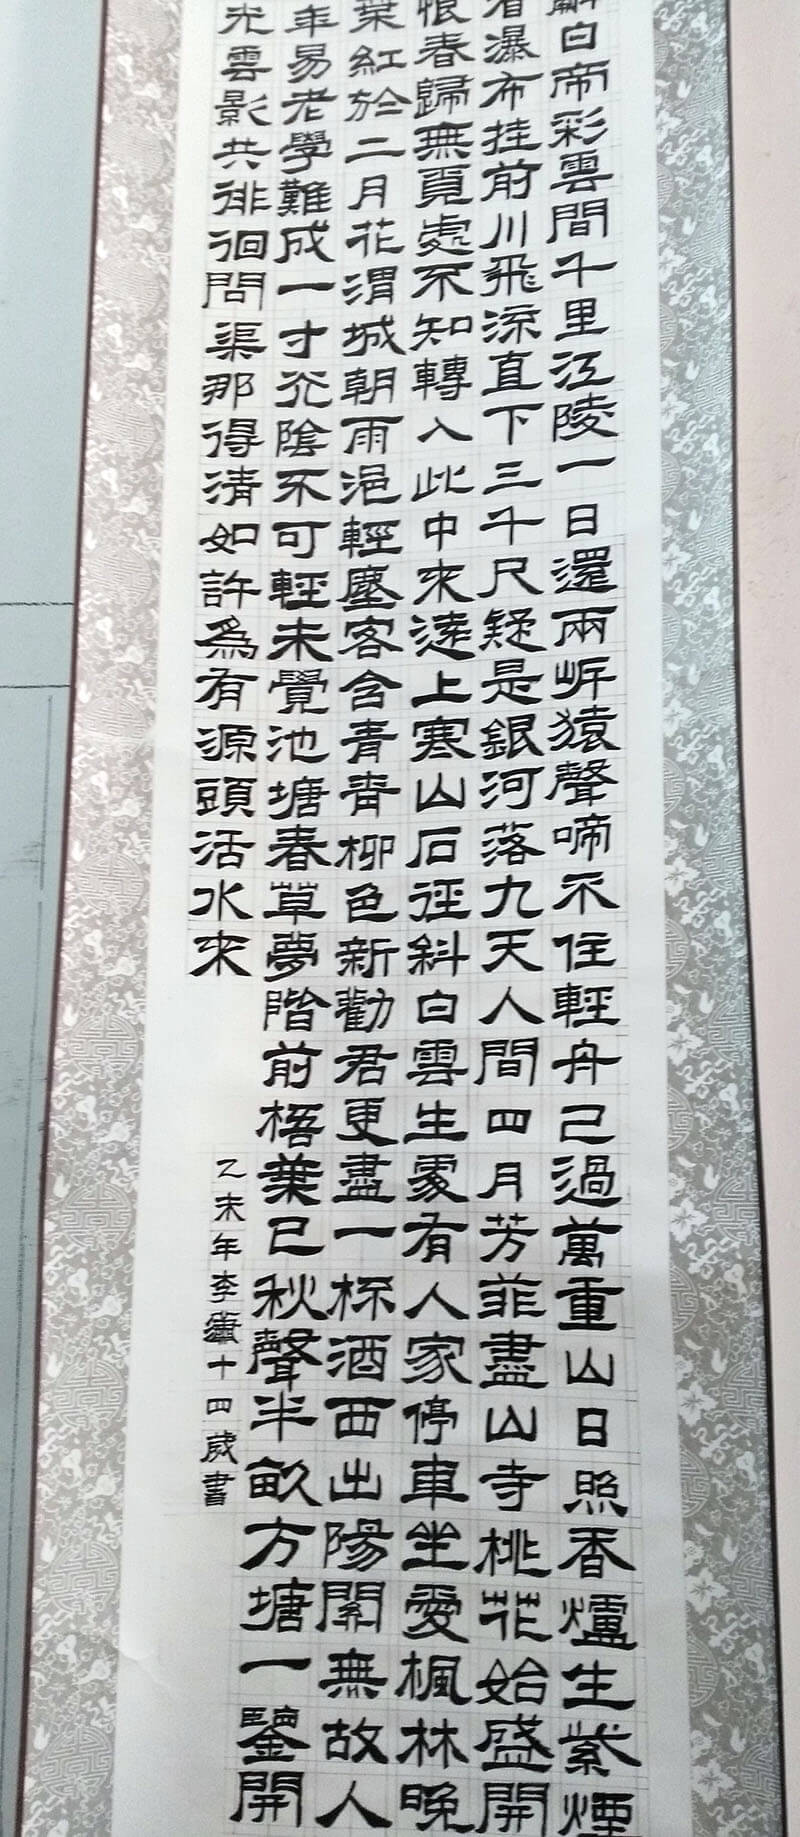 辭白帝彩雲間千里江陵一日還兩岍猿聲啼不住輕舟已過萬重山日照香爐生紫煙
看瀑布挂前川飛流直下三千尺疑是銀河落九天人間四月芳菲盡山寺桃花始盛開
恨春歸無覓處不知轉入此中來遠上寒山石徑斜白雲生處有人家停車坐愛楓林晚
葉紅於二月花渭城朝雨浥輕塵客含青青柳色新勸君更盡一杯酒西出陽關無故人
年易老學難成一寸光陰不可輕未覺池塘春草夢階前梧葉已秋聲半畝方塘一鑒開
光雲影共徘徊問渠那得清如許為有源頭活水來
乙未年李十四歲書